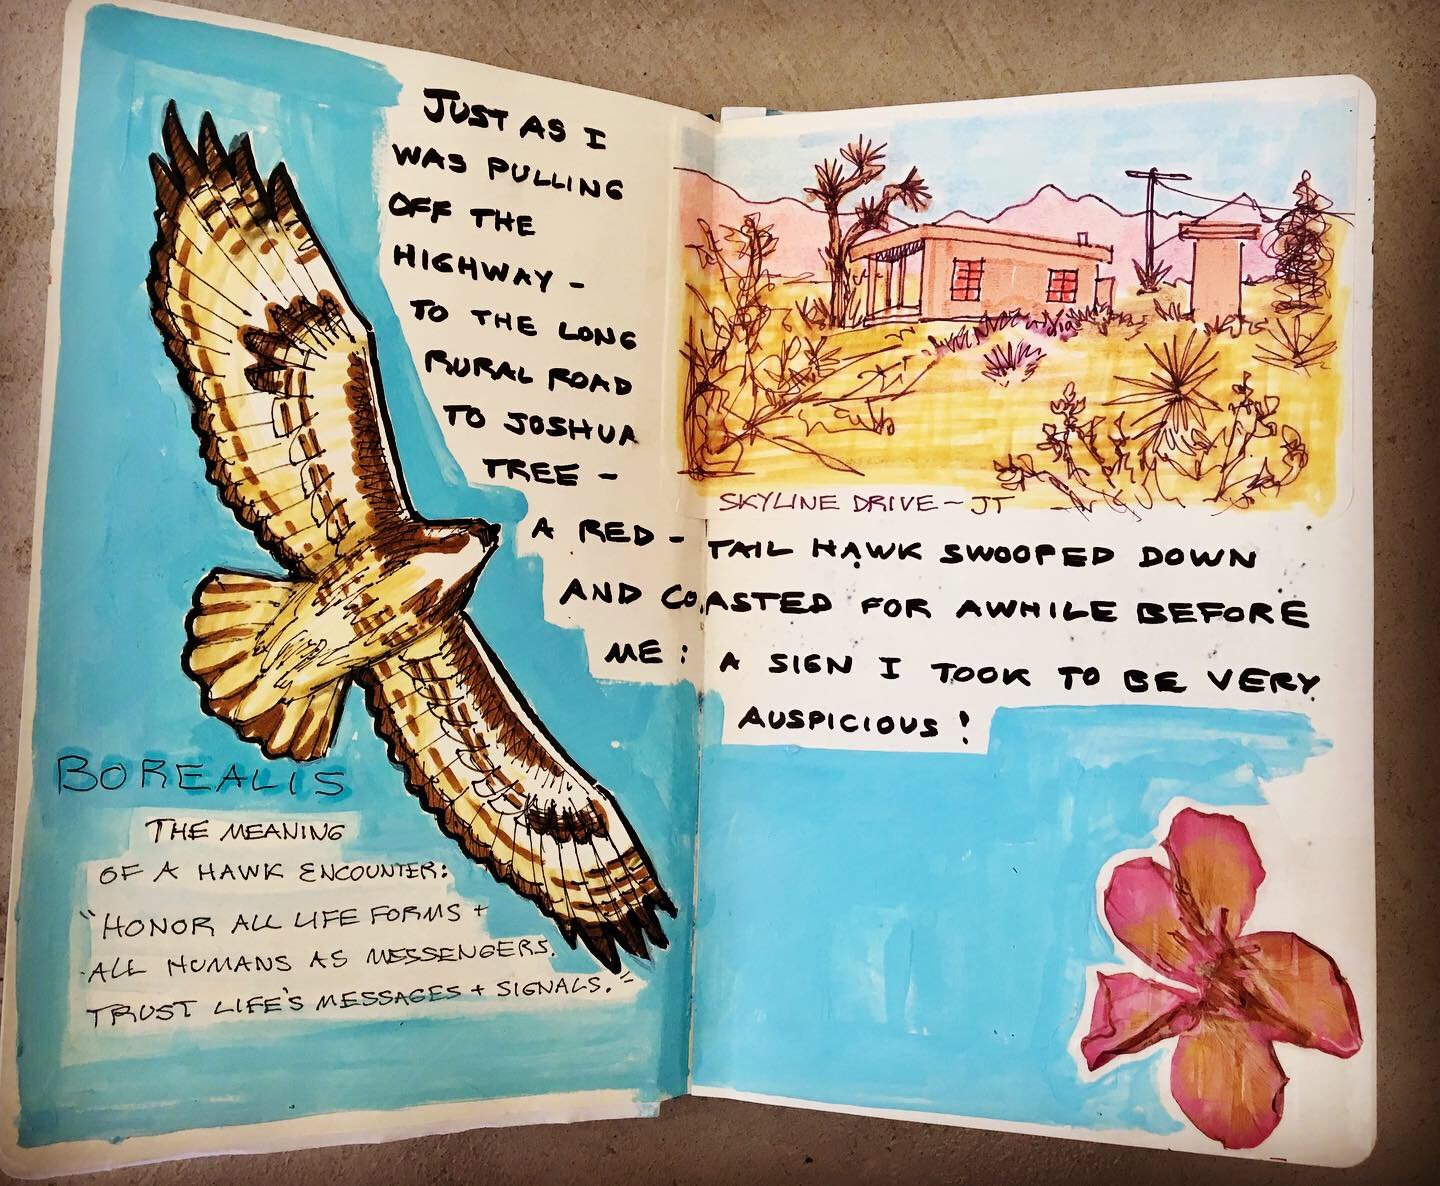 JUST AS I
WAS PULLING
OFF THE
HIGHWAY -
TO THE LONG
RURAL ROAD
TO JOSHUA
TREE -
A RED - TAIL HAWK SWOOPED DOWN
AND COASTED FOR AWHILE BEFORE
ME : A SIGN I TOOK TO BE VERY
AUSPICIOUS !
SKYLINE DRIVE - JT
BOREALIS
THE MEANING
OF A HAWK ENCOUNTER:
"HONOR ALL LIFE FORMS +
ALL HUMANS AS MESSENGERS.
TRUST LIFE'S MESSAGES + SIGNALS."